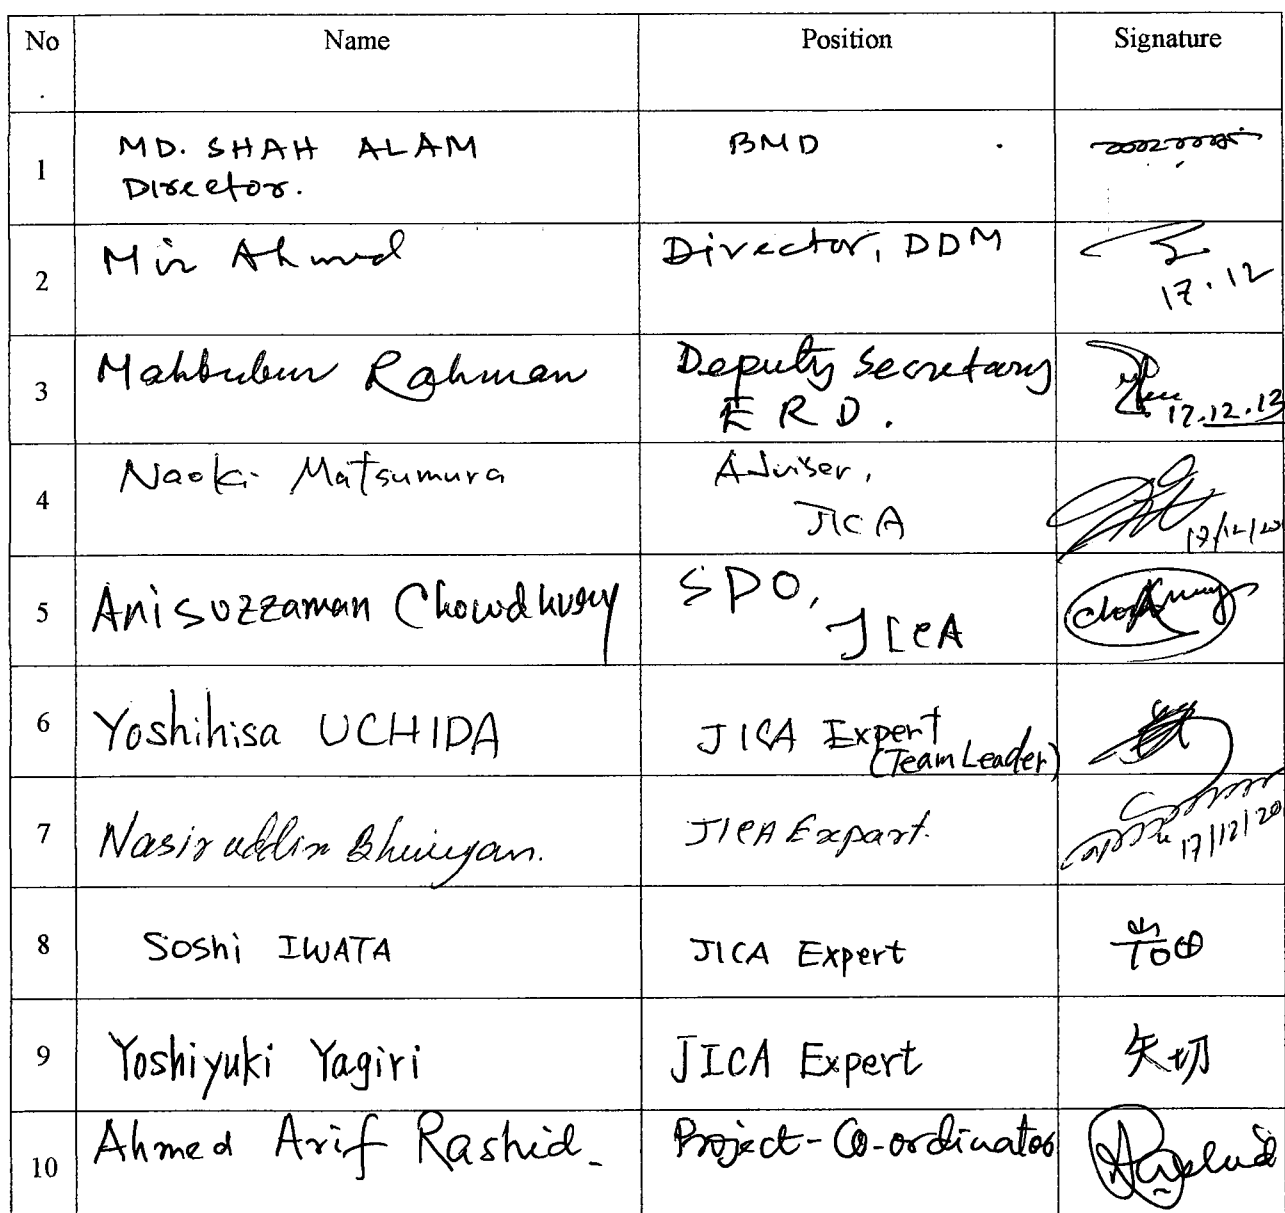 No Name Position Signature
.
1 MD. SHAH ALAM BMD .
Director.
2 Mir Ahmed Director, DDM
17.12
3 Mahbubur Rahman Deputy Secretary
E R D. 17.12.13
4 Naoki Matsumura Adviser,
JICA 17/12/20
5 Anisuzzaman Chowdhury SPO,
JICA
6 Yoshihisa UCHIDA JICA Expert
(Team Leader)
7 Nasiruddin Bhuiyan. JICA Expart.
17/12/20
8 Soshi IWATA JICA Expert 岩田
9 Yoshiyuki Yagiri JICA Expert 矢切
10 Ahmed Arif Rashid. Project-Co-ordinator